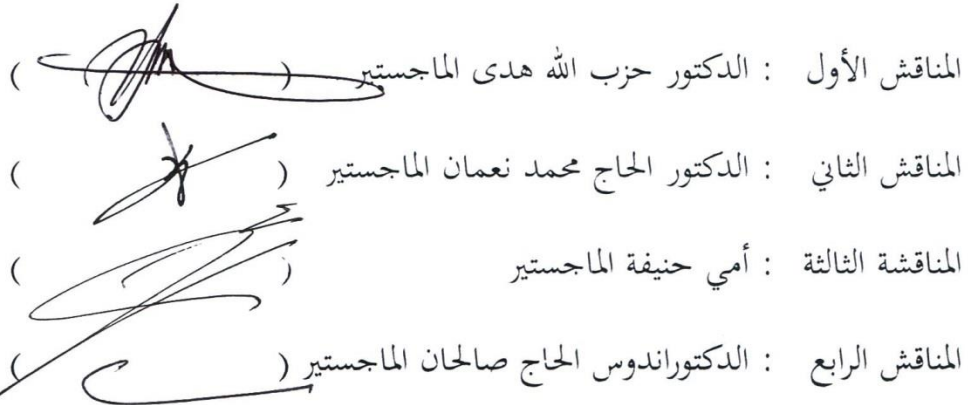 المناقش الأول : الدكتور حزب الله هدى الماجستير ( )
المناقش الثاني : الدكتور الحاج محمد نعمان الماجستير ( )
المناقشة الثالثة : أمي حنيفة الماجستير ( )
المناقش الرابع : الدكتوراندوس الحاج صالحان الماجستير ( )